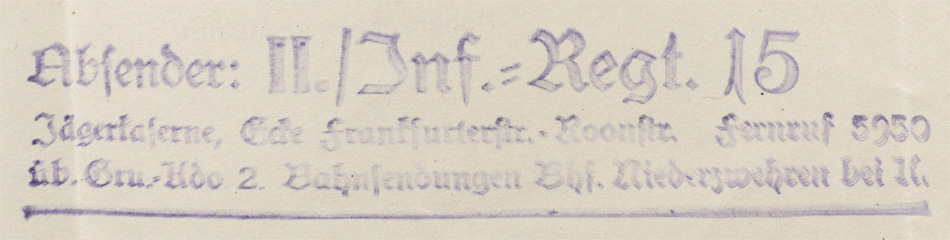 Absender: II./Inf.-Regt. 15
Jägerkaserne, Ecke Frankfurterstr.-Roonstr. Fernruf 5950
üb. Gru.-Kdo 2. Bahnsendungen Bhf. Niederzwehren bei K.